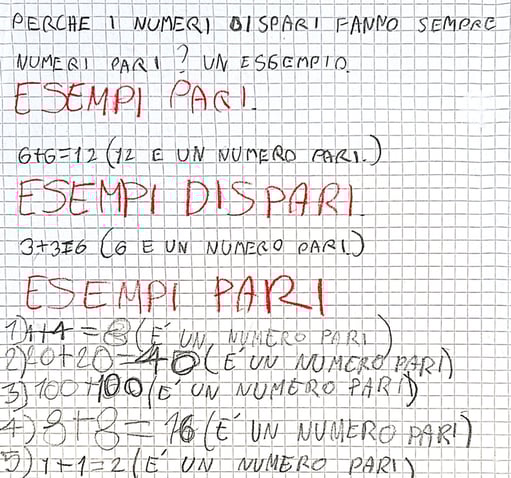 PERCHE I NUMERI DISPARI FANNO SEMPRE
NUMERI PARI? UN ESSEMPIO.
ESEMPI PARI.
6+6=12 (12 E UN NUMERO PARI.)
ESEMPI DISPARI.
3+3=6 (6 E UN NUMERO PARI.)
ESEMPI PARI
1) 4+4=8 (E' UN NUMERO PARI)
2) 20+20=40 (E' UN NUMERO PARI)
3) 100+100 (E' UN NUMERO PARI)
4) 8+8=16 (E' UN NUMERO PARI)
5) 1+1=2 (E' UN NUMERO PARI)